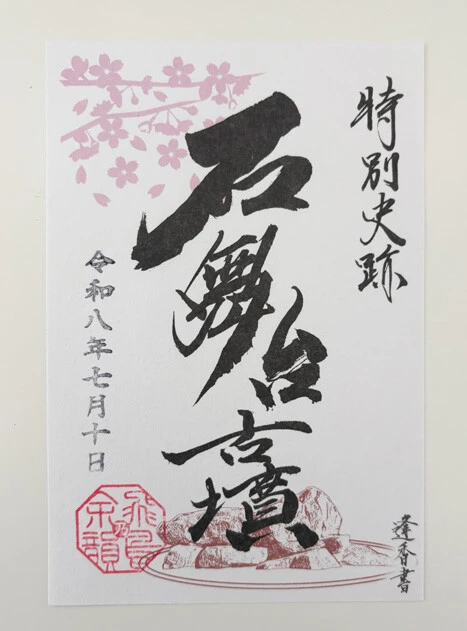 特別史跡
石舞台古墳
令和八年七月十日
飛鳥
余韻
逢香書